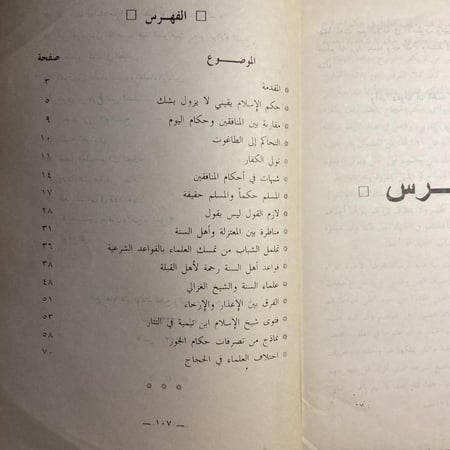 الفهرس
الموضوع صفحة
المقدمة ٣
حكم الإسلام يقيني لا يزول بشك ٥
مقارنة بين المنافقين وحكام اليوم ٩
التحاكم إلى الطاغوت ١٠
تولي الكفار ١١
شبهات في أحكام المنافقين ١٤
المسلم حكماً والمسلم حقيقة ١٧
لازم القول ليس بقول ٢٨
مناظرة بين المعتزلة وأهل السنة ٣١
تململ الشباب من تمسك العلماء بالقواعد الشرعية ٣٦
قواعد أهل السنة رحمة لأهل القبلة ٣٨
علماء السنة والشيخ الغزالي ٤٨
الفرق بين الإعذار والإرجاء ٥١
فتوى شيخ الإسلام ابن تيمية في التتار ٥٣
نماذج من تصرفات حكام الجور ٥٨
اختلاف العلماء في الحجاج ٧٠
— ١٠٧ —
ـرس